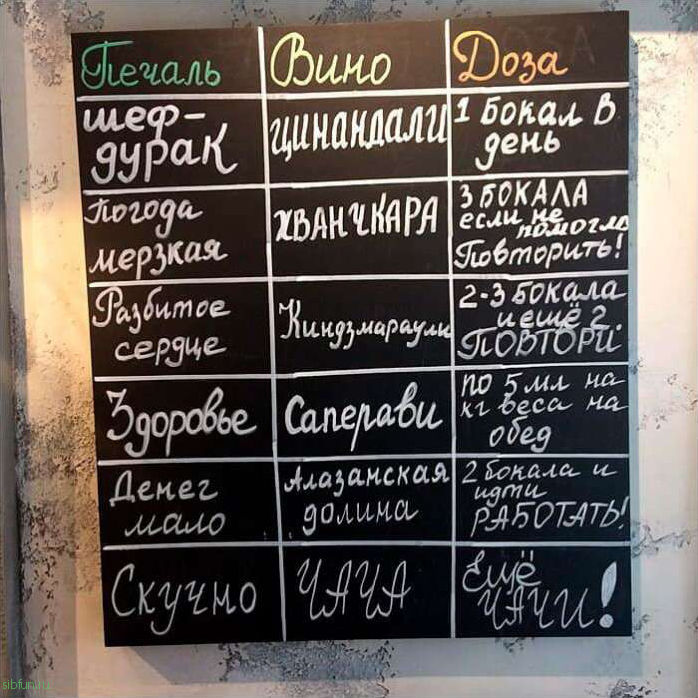 Печаль
Вино
Доза
шеф-
дурак
Цинандали
1 бокал в
день
Погода
мерзкая
ХВАНЧКАРА
3 БОКАЛА
если не
помогло
Повторить!
Разбитое
сердце
Киндзмараули
2-3 бокала
и ещё 2.
ПОВТОРИ
Здоровье
Саперави
по 5 мл на
кг веса на
обед
Денег
мало
Алазанская
долина
2 бокала и
идти
РАБОТАТЬ!
Скучно
ЧАЧА
Ещё
ЧАЧИ!
sibfun.ru